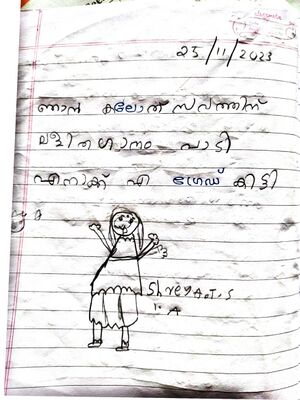 25/11/2023
ഞാൻ കലോത്സവത്തിന്
ലളിതഗാനം പാടി
എനാക്ക് എ ഗ്രേഡ് കിട്ടി
Shreya.T.S
1.A